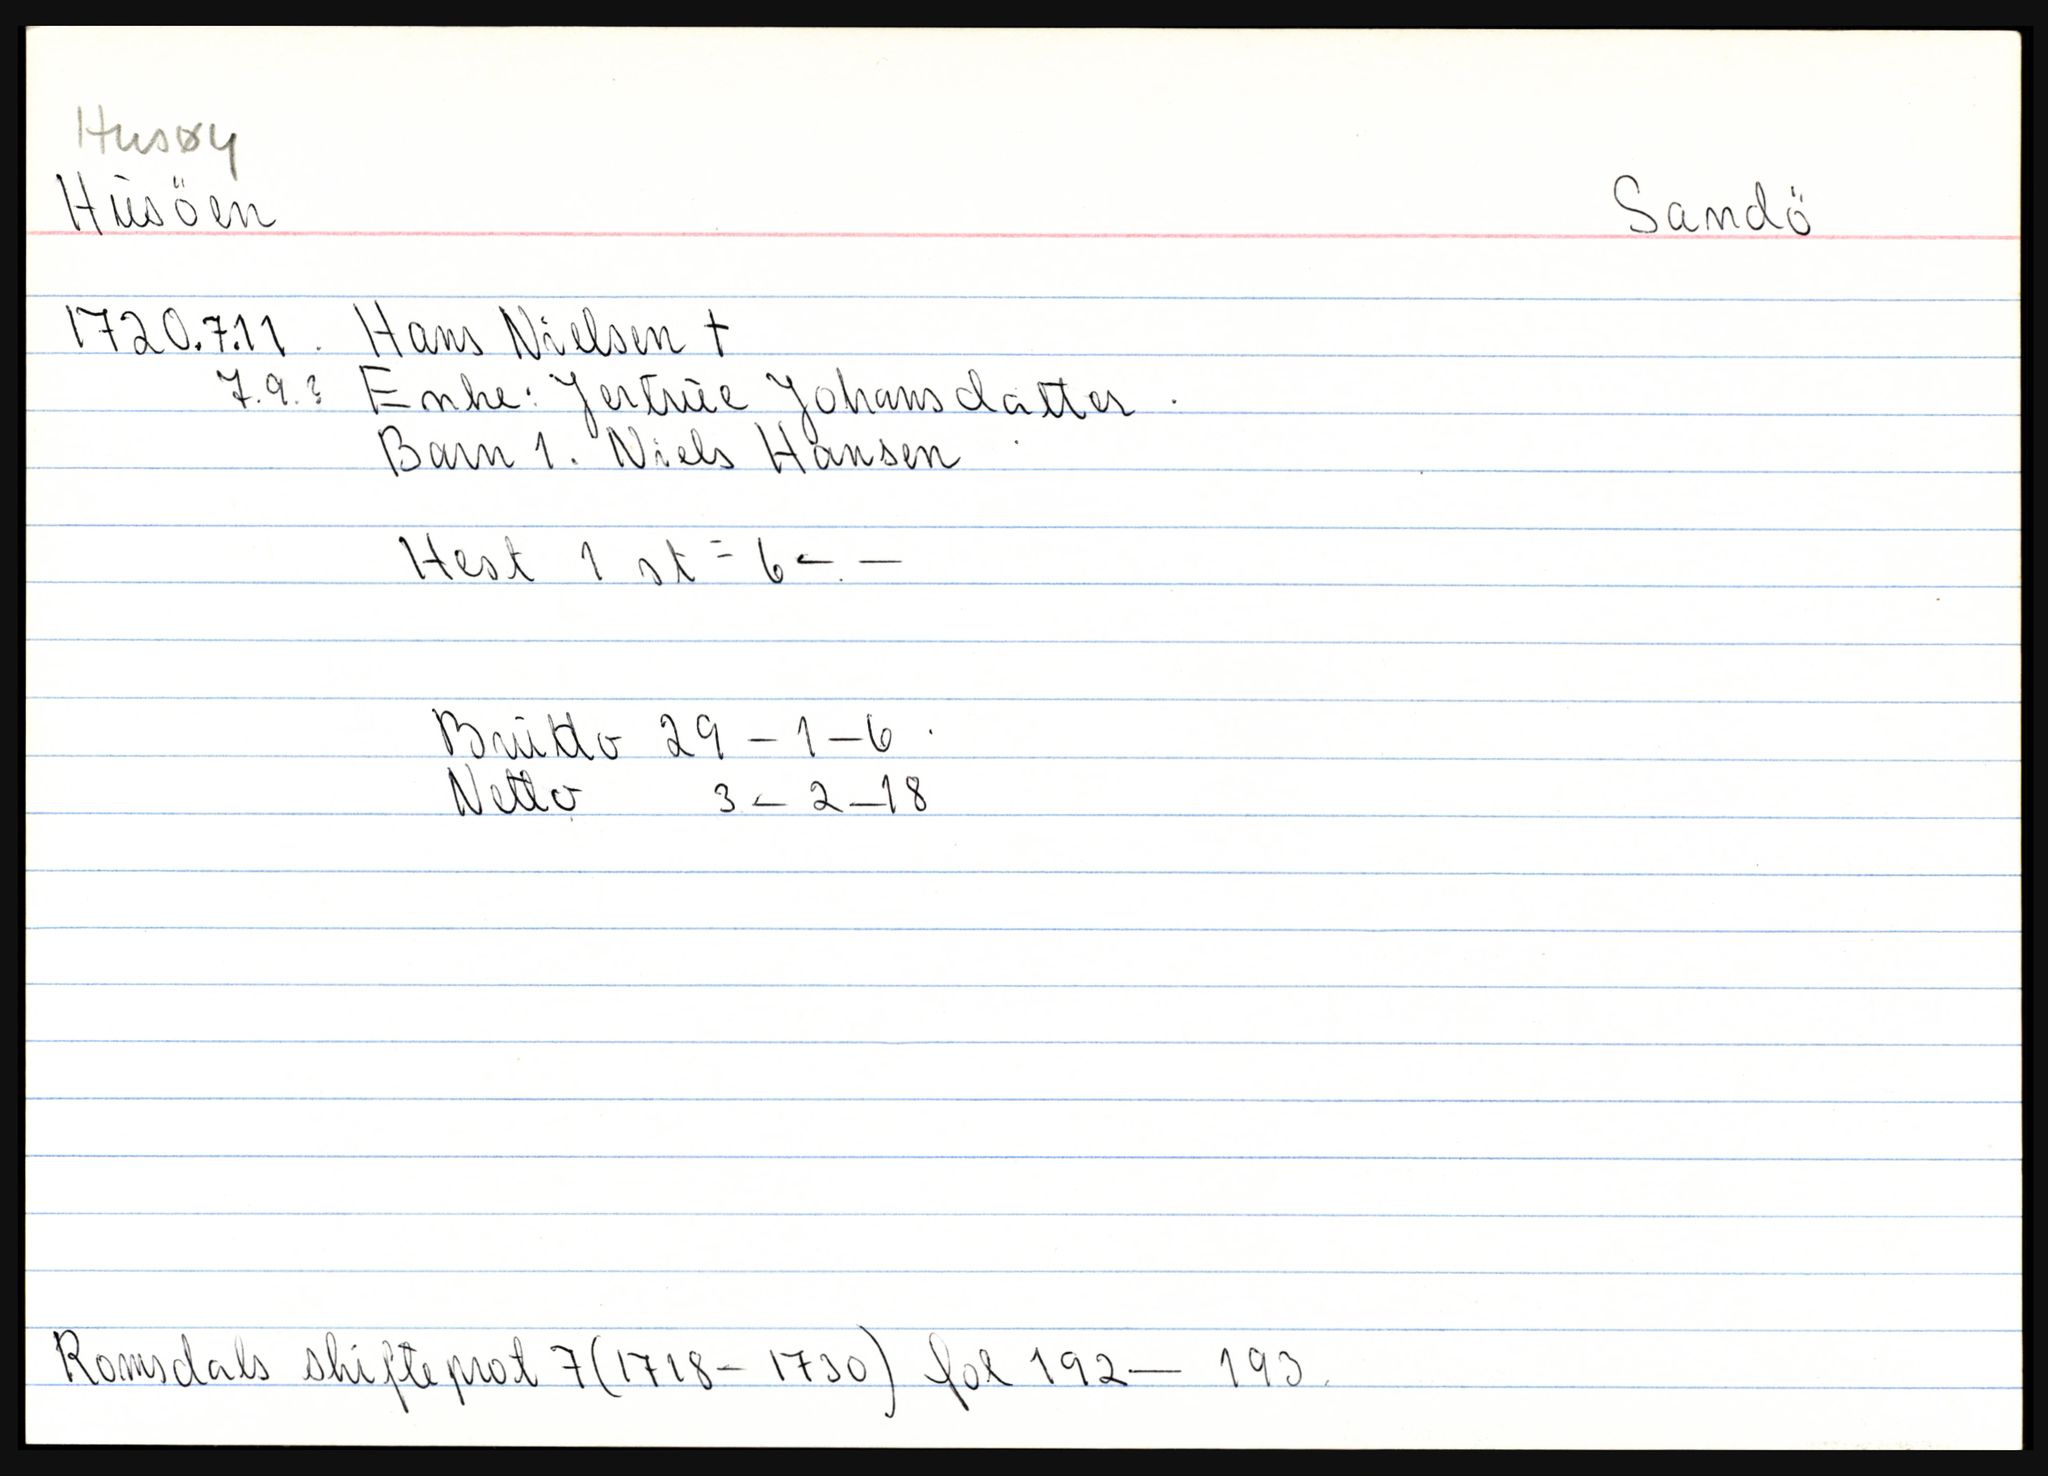 Husøy
Hüsöen Sandö
1720.7.11. Hans Nielsen †
7.9.? Enke: Jertrüe Johansdatter.
Barn 1. Niels Hansen
Hest 1 st = 6 - -
Brütto 29 - 1 - 6.
Netto 3 - 2 - 18
Romsdals skifteprot 7 (1718 - 1730) fol 192 - 193.